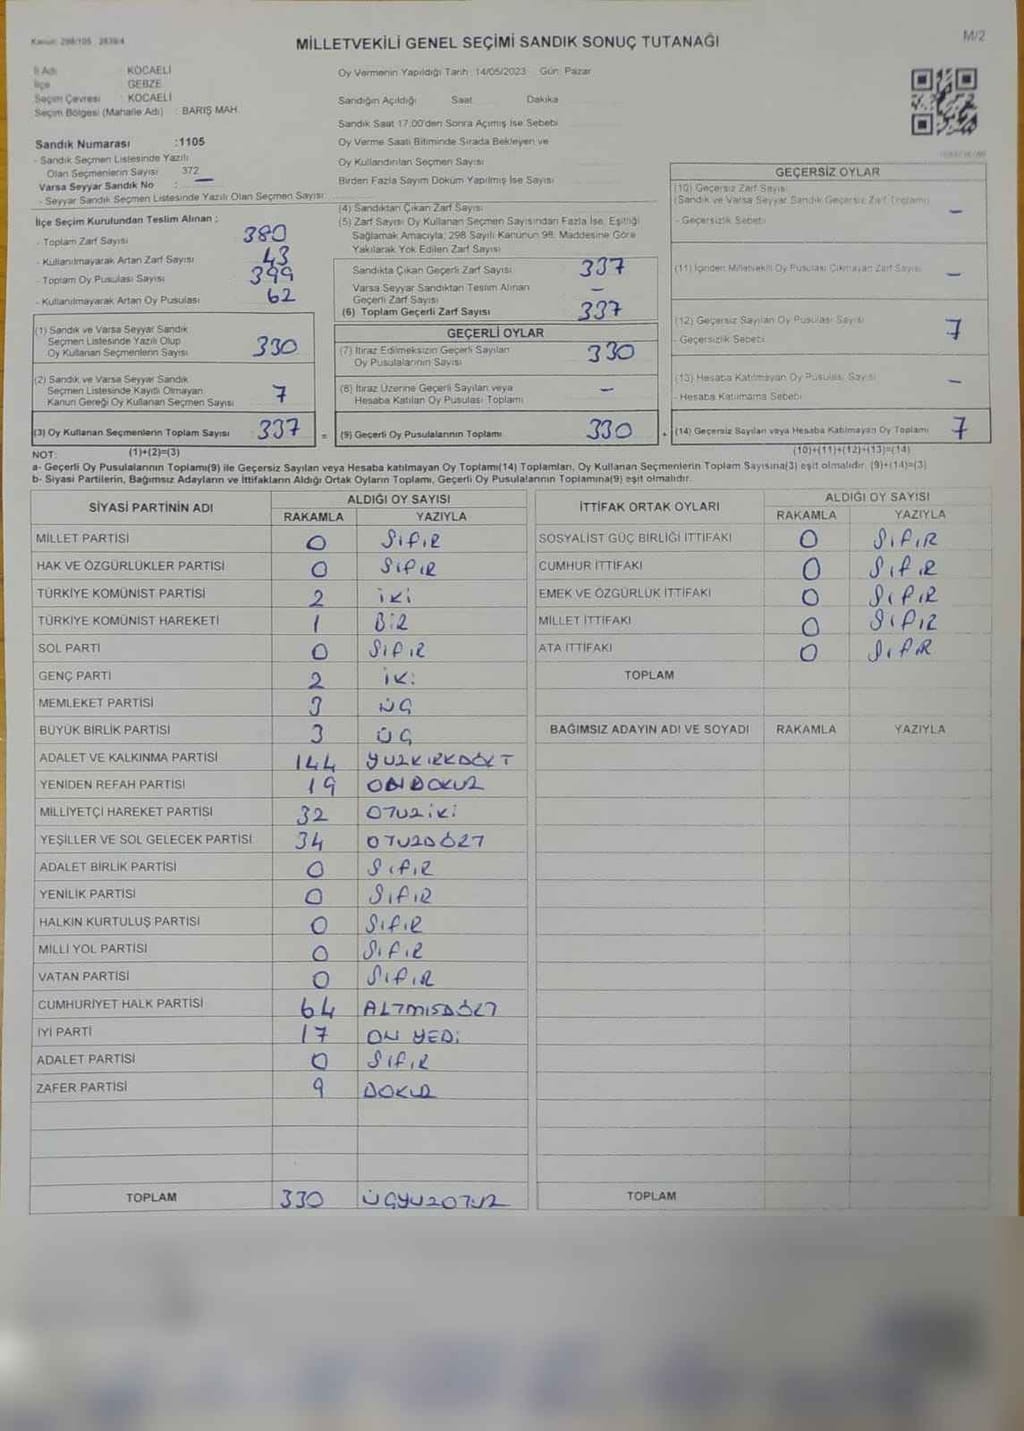 Kanun: 298/105 2839/4
MİLLETVEKİLİ GENEL SEÇİMİ SANDIK SONUÇ TUTANAĞI
M/2
İl Adı KOCAELİ
İlçe GEBZE
Seçim Çevresi : KOCAELİ
Seçim Bölgesi (Mahalle Adı) : BARIŞ MAH.
Sandık Numarası :1105
- Sandık Seçmen Listesinde Yazılı
Olan Seçmenlerin Sayısı 372
Varsa Seyyar Sandık No : —
- Seyyar Sandık Seçmen Listesinde Yazılı Olan Seçmen Sayısı
Oy Vermenin Yapıldığı Tarih: 14/05/2023 Gün: Pazar
Sandığın Açıldığı Saat Dakika
Sandık Saat 17.00'den Sonra Açımış İse Sebebi
Oy Verme Saati Bitiminde Sırada Bekleyen ve
Oy Kullandırılan Seçmen Sayısı
Birden Fazla Sayım Döküm Yapılmış İse Sayısı
İlçe Seçim Kurulundan Teslim Alınan :
- Toplam Zarf Sayısı 380
- Kullanılmayarak Artan Zarf Sayısı 43
- Toplam Oy Pusulası Sayısı 399
- Kullanılmayarak Artan Oy Pusulası 62
(1) Sandık ve Varsa Seyyar Sandık
Seçmen Listesinde Yazılı Olup
Oy Kullanan Seçmenlerin Sayısı 330
(2) Sandık ve Varsa Seyyar Sandık
Seçmen Listesinde Kayıtlı Olmayan
Kanun Gereği Oy Kullanan Seçmen Sayısı 7
(3) Oy Kullanan Seçmenlerin Toplam Sayısı 337 =
(4) Sandıktan Çıkan Zarf Sayısı
(5) Zarf Sayısı Oy Kullanan Seçmen Sayısından Fazla İse, Eşitliği
Sağlamak Amacıyla, 298 Sayılı Kanunun 98. Maddesine Göre
Yakılarak Yok Edilen Zarf Sayısı
Sandıkta Çıkan Geçerli Zarf Sayısı 337
Varsa Seyyar Sandıktan Teslim Alınan
Geçerli Zarf Sayısı —
(6) Toplam Geçerli Zarf Sayısı 337
GEÇERLİ OYLAR
(7) İtiraz Edilmeksizin Geçerli Sayılan
Oy Pusulalarının Sayısı 330
(8) İtiraz Üzerine Geçerli Sayılan veya
Hesaba Katılan Oy Pusulası Toplamı —
(9) Geçerli Oy Pusulalarının Toplamı 330 +
GEÇERSİZ OYLAR
(10) Geçersiz Zarf Sayısı
(Sandık ve Varsa Seyyar Sandık Geçersiz Zarf Toplamı) —
- Geçersizlik Sebebi
(11) İçinden Milletvekili Oy Pusulası Çıkmayan Zarf Sayısı —
(12) Geçersiz Sayılan Oy Pusulası Sayısı 7
- Geçersizlik Sebebi
(13) Hesaba Katılmayan Oy Pusulası Sayısı —
- Hesaba Katılmama Sebebi
(14) Geçersiz Sayılan veya Hesaba Katılmayan Oy Toplamı 7
NOT: (1)+(2)=(3) (10)+(11)+(12)+(13)=(14)
a- Geçerli Oy Pusulalarının Toplamı(9) ile Geçersiz Sayılan veya Hesaba katılmayan Oy Toplamı(14) Toplamları, Oy Kullanan Seçmenlerin Toplam Sayısına(3) eşit olmalıdır. (9)+(14)=(3)
b- Siyasi Partilerin, Bağımsız Adayların ve İttifakların Aldığı Ortak Oyların Toplamı, Geçerli Oy Pusulalarının Toplamına(9) eşit olmalıdır.
SİYASİ PARTİNİN ADI ALDIĞI OY SAYISI
RAKAMLA YAZIYLA
MİLLET PARTİSİ 0 SIFIR
HAK VE ÖZGÜRLÜKLER PARTİSİ 0 SIFIR
TÜRKİYE KOMÜNİST PARTİSİ 2 İKİ
TÜRKİYE KOMÜNİST HAREKETİ 1 BİR
SOL PARTİ 0 SIFIR
GENÇ PARTİ 2 İKİ
MEMLEKET PARTİSİ 3 ÜÇ
BÜYÜK BİRLİK PARTİSİ 3 ÜÇ
ADALET VE KALKINMA PARTİSİ 144 YÜZKIRKDÖRT
YENİDEN REFAH PARTİSİ 19 ONDOKUZ
MİLLİYETÇİ HAREKET PARTİSİ 32 OTUZİKİ
YEŞİLLER VE SOL GELECEK PARTİSİ 34 OTUZDÖRT
ADALET BİRLİK PARTİSİ 0 SIFIR
YENİLİK PARTİSİ 0 SIFIR
HALKIN KURTULUŞ PARTİSİ 0 SIFIR
MİLLİ YOL PARTİSİ 0 SIFIR
VATAN PARTİSİ 0 SIFIR
CUMHURİYET HALK PARTİSİ 64 ALTMIŞDÖRT
İYİ PARTİ 17 ON YEDİ
ADALET PARTİSİ 0 SIFIR
ZAFER PARTİSİ 9 DOKUZ
TOPLAM 330 ÜÇYÜZOTUZ
İTTİFAK ORTAK OYLARI ALDIĞI OY SAYISI
RAKAMLA YAZIYLA
SOSYALİST GÜÇ BİRLİĞİ İTTİFAKI 0 SIFIR
CUMHUR İTTİFAKI 0 SIFIR
EMEK VE ÖZGÜRLÜK İTTİFAKI 0 SIFIR
MİLLET İTTİFAKI 0 SIFIR
ATA İTTİFAKI 0 SIFIR
TOPLAM
BAĞIMSIZ ADAYIN ADI VE SOYADI RAKAMLA YAZIYLA
TOPLAM